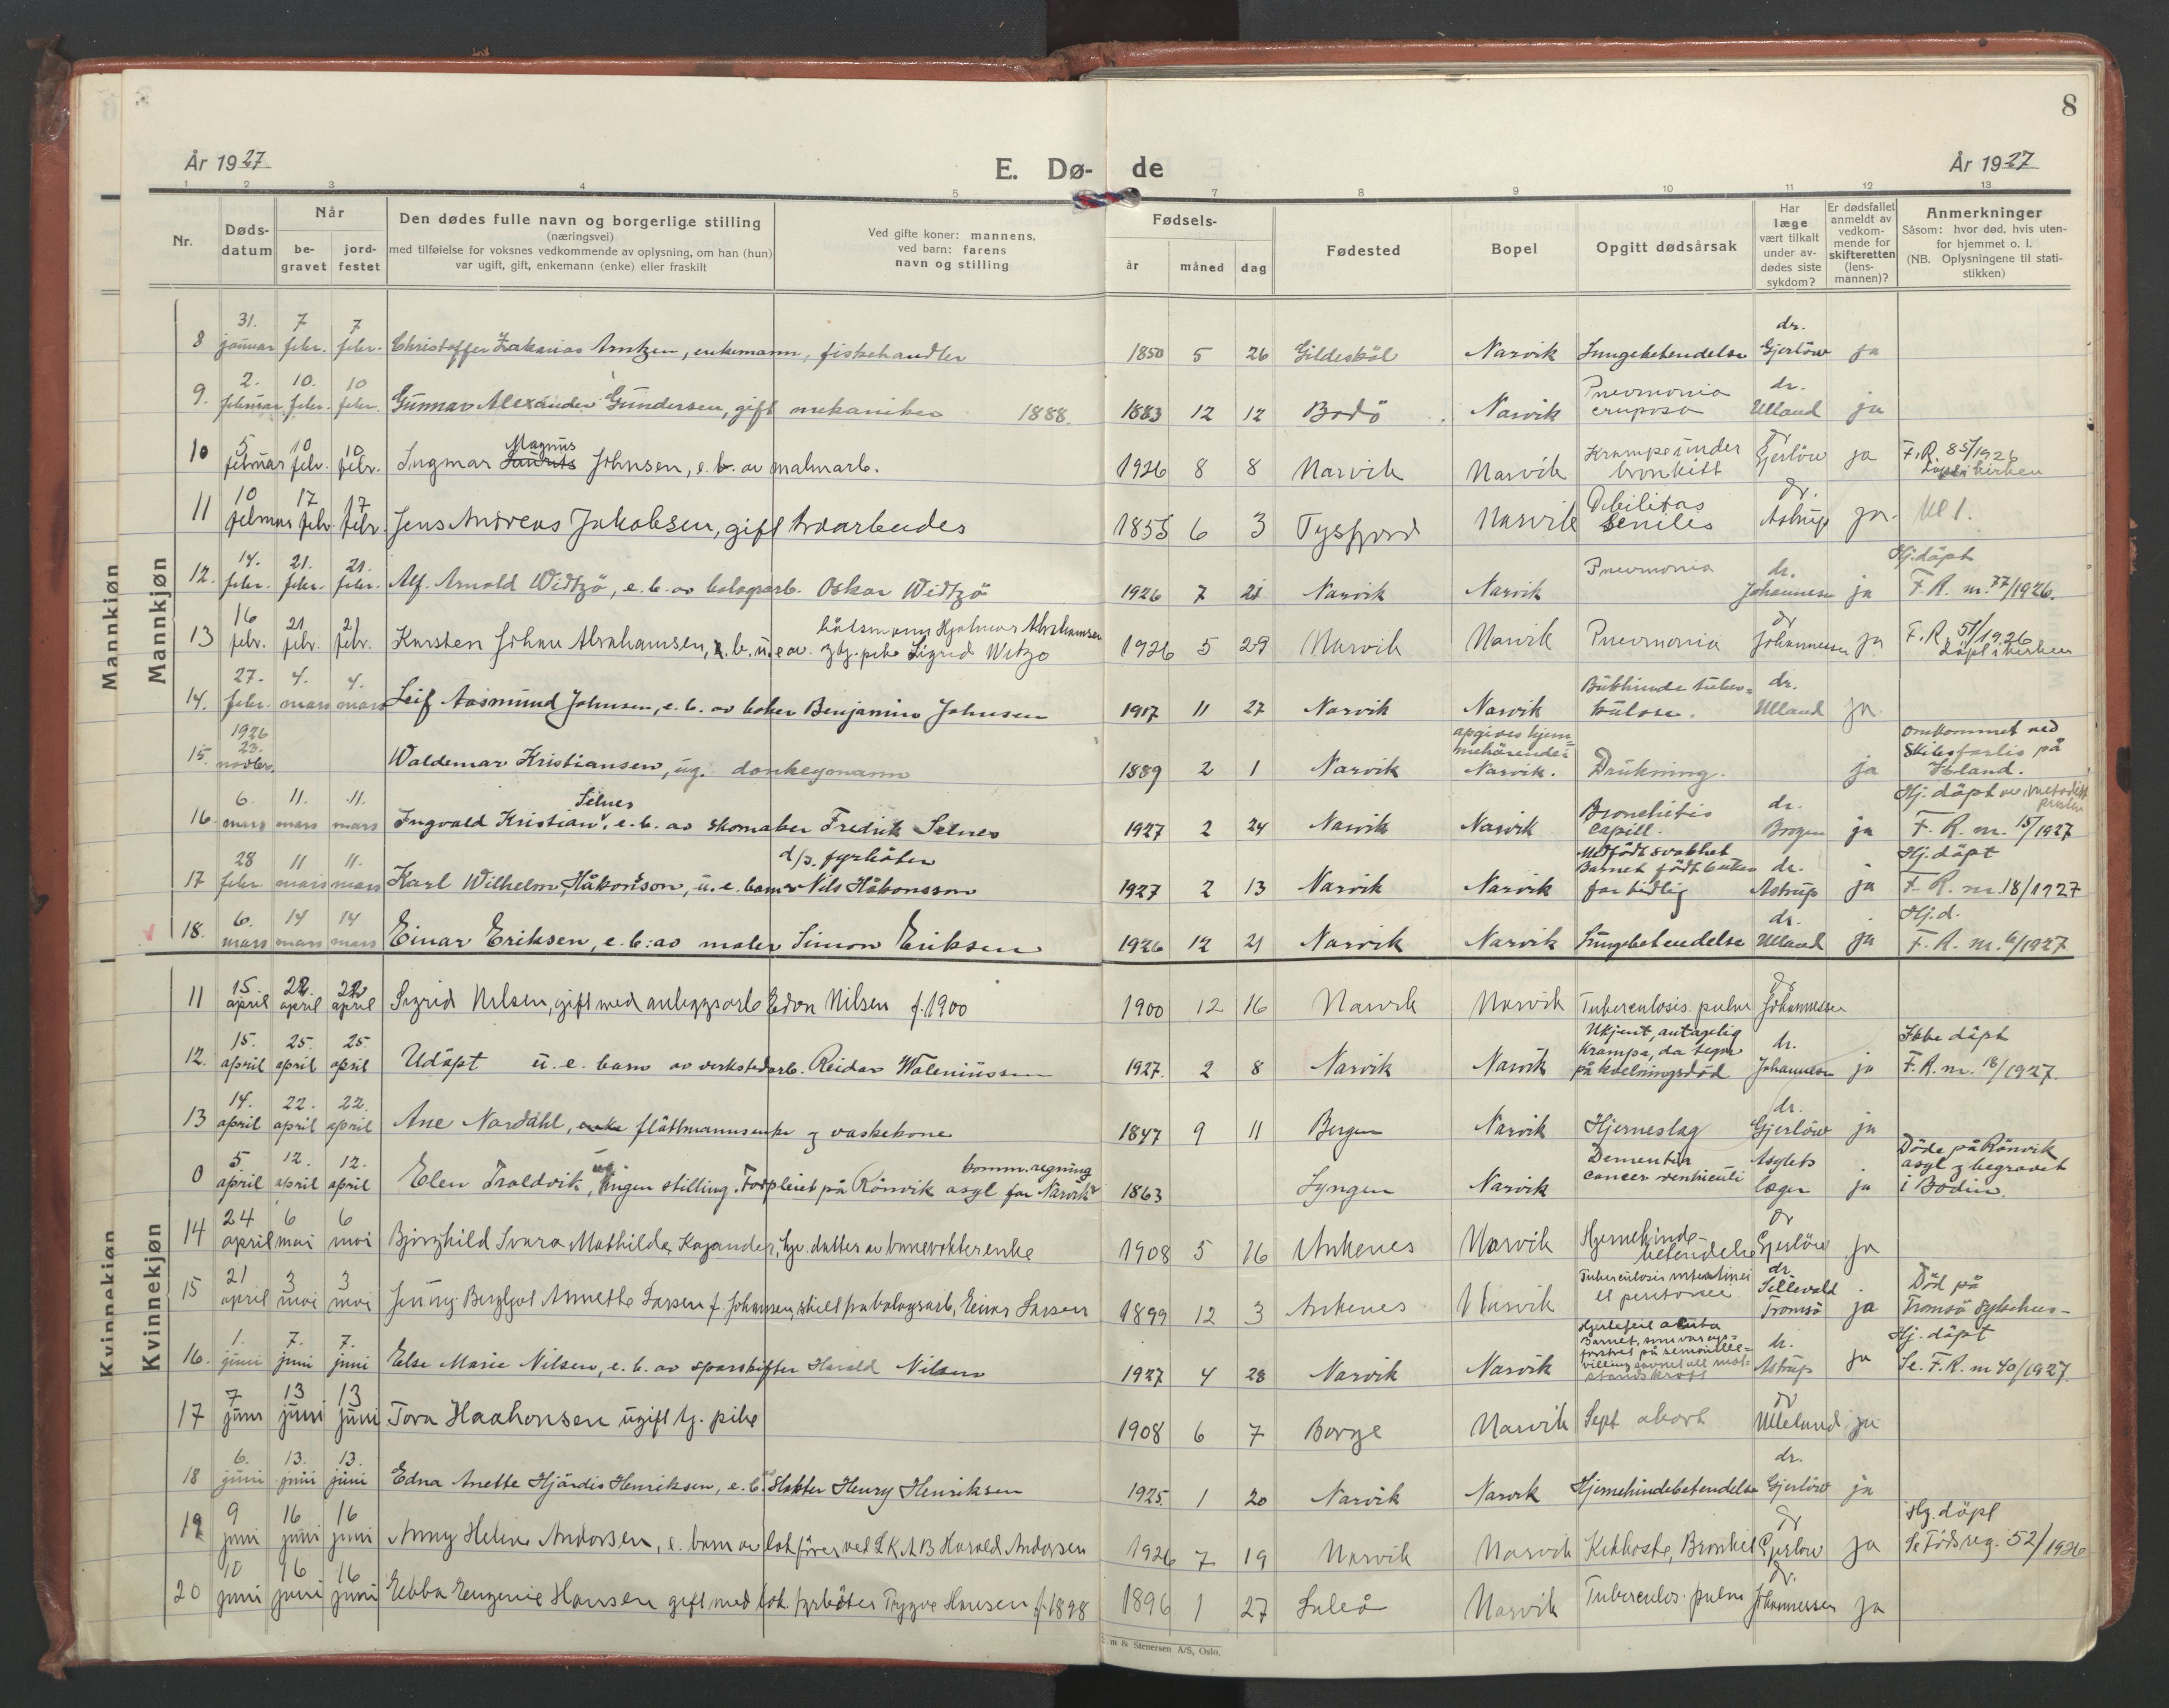 8
År 1927
E. Dø- de
År 1927
1 2 3 4 5 7 8 9 10 11 12 13
Nr.
Døds-
datum
Når
be-
gravet
jord-
festet
Den dødes fulle navn og borgerlige stilling
(næringsvei)
med tilføielse for voksnes vedkommende av oplysning, om han (hun)
var ugift, gift, enkemann (enke) eller fraskilt
Ved gifte koner: mannens,
ved barn: farens
navn og stilling
Fødsels-
år måned dag
Fødested
Bopel
Opgitt dødsårsak
Har
læge
vært tilkalt
under av-
dødes siste
sykdom?
Er dødsfallet
anmeldt av
vedkom-
mende for
skifteretten
(lens-
mannen)?
Anmerkninger
Såsom: hvor død, hvis uten-
for hjemmet o. l.
(NB. Oplysningene til stati-
stikken)
Mannkjøn
Mannkjøn
31. 7 7 dr.
8 januar febr. febr. Christoffer Zakarias Arntzen, enkemann, fiskehandler 1850 5 26 Gildeskål Narvik Lungebetendelse Gjerlöw ja
2. 10. 10 Pneumonia dr.
9. februar febr. febr. Gunnar Alexander Gundersen, gift mekaniker 1888. 1883 12 12 Bodö Narvik cruposa Ulland ja
5 10 10 Magnus Krampe under dr
10 februar febr. febr. Ingmar Laurits Johnsen, e. b. av malmarb. 1926 8 8 Narvik Narvik bronkitt Gjerlöw ja F.R. 85/1926
döpt i kirken
10 17 17 Debilitas dr.
11 februar febr. febr. Jens Andreas Jakobsen, gift 1855 6 3 Tysfjord Narvik seniles Astrup ja.
14. 21. 21. Pneumonia dr. Hj.döpt
12. febr. febr. febr. Alf Arnold Widtzö, e. b. av bolagsarb. Oskar Widtzö 1926 7 21 Narvik Narvik Johannesen ja F. R. nr. 77/1926.
16 21 21 båtsmann Hjalmar Abrahamsen dr
13 febr. febr. febr. Karsten Johan Abrahamsen, b. u. e av. og tj. pike Sigrid Witzo 1926 5 29 Narvik Narvik Pneumonia Johannessen ja F.R. 51/1926
döpt i kirken
27. 4. 4. dr.
14. febr. mars mars Leif Aasmund Johnsen, e. b. av baker Benjamin Johnsen 1917 11 27 Narvik Narvik Bukhinde tuber=
kulose. Ulland ja
1926
23. opgives hjem=
mehörende i omkommet ved
15. novbr. Waldemar Kristiansen, ug. donkeymann 1889 2 1 Narvik Narvik. Drukning. ja skibsforlis på
Hland.
6. 11. 11. Selnes Bronchitis dr. Hj. döpt av metodist
presten
16. mars mars mars Ingvald Kristian, e. b. av skomaker Fredrik Selnes 1927 2 24 Narvik Narvik capill. Borgen ja F. R. nr. 15/1927
28 11 11. d/s. fyrböter Medfödt svakhet
Barnet födt 6 uker dr. Hj. döpt
17 febr. mars mars Karl Wilhelm Håkonson, u. e. barn av Nils Håkonsson 1927 2 13 Narvik Narvik for tidlig Astrup ja F. R. nr. 18/1927
6. 14 14 dr. Hj.d.
18. mars mars mars Einar Eriksen, e. b. av maler Simon Eriksen 1926 12 21 Narvik Narvik Lungebetendelse Ulland ja F. R. nr. 6/1927
Kvinnekjøn
Kvinnekjøn
15 22. 22 dr
11 april april april Sigrid Nilsen, gift med anleggsarb Edon Nilsen f. 1900 1900 12 16 Narvik Narvik Tuberculosis pulm Johannessen
15. 25. 25. Ukjent, antagelig
krampe, da tegn dr. Ikke döpt
12. april april april Udöpt u. e. barn av verkstedarb. Reidar Waleniussen 1927. 2 8 Narvik Narvik på kvelningsdöd Johannesen ja F. R. nr. 18/1927.
14. 22. 22. dr.
13 april april april Ane Nordahl, enke flåttmannsenke og vaskekone 1847 9 11 Bergen Narvik Hjerneslag Gjerlöw ja
5 12. 12. ug komm. regning Dementia Asylets Döde på Rönvik
0 april april april Elen Troldvik, ingen stilling. Forpleiet på Rönvik asyl for Narvik 1863 Lyngen Narvik cancer ventriculi læge ja asyl og begravet
i Bodin.
24 6 6 dr
14 april mai mai Bjorghild Svara Mathilde Kajander, hj. datter av banevokterenke 1908 5 16 Ankenes Narvik Hjernehinde-
betendelse Gjerlöw ja
21 3 3 Tuberculosis intestinei dr. Död på
15 april mai mai Jenny Bergljot Annette Larsen f. Johansen, skilt fra bolagsarb. Einar Larsen 1899 12 3 Ankenes Narvik et peritonei Sillevold
Tromsö ja Tromsö sykehus-
1. 7. 7. Hjertefeil akuta
Barnet, dr. Hj. döpt
16. juni juni juni Else Marie Nilsen, e. b. av sporskifter Harald Nilsen 1927 4 28 Narvik Narvik Astrup ja Se. F. R. nr 40/1927.
7 13 13 dr
17 juni juni juni Tora Haakonsen ugift tj. pike 1908 6 7 Borge Narvik Sept abort Ulleland ja
6. 13. 13. dr.
18 juni juni juni Edna Anette Hjördis Henriksen, e. b. av slakter Henry Henriksen 1925. 1 20 Narvik Narvik Hjernehindebetendelse Gjerlöw ja
9 16 16 dr Hj. döpt
19 juni juni juni Anny Helene Andorsen, e. barn av lokförer ved LKAB Harald Andorsen 1926 7 19 Narvik Narvik Kikhoste, Bronkit Gjerlöw ja Se Födsreg. 52/1926
10 16 16 dr.
20 juni juni juni Ebba Eugenie Hansen gift med lok. fyrböter Trygve Hansen f. 1898 1896 1 27 Luleå Narvik Tuberculos. pulm Johannessen ja
m & Stenersen A/S, Oslo.